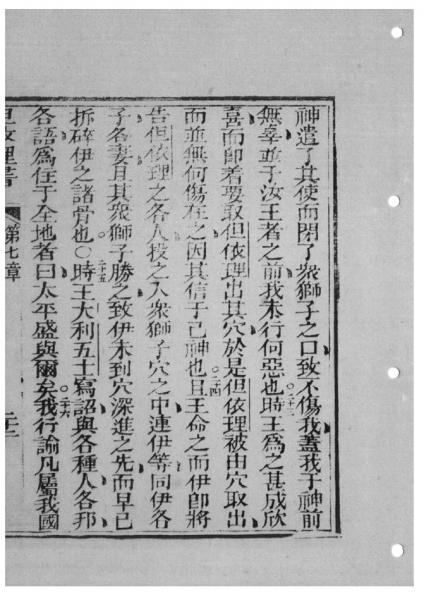 神遣了其使而閉了衆獅子之口致不傷我蓋我于神前
無辜並于汝王者之前我未行何惡也二十三時王爲之甚成欣
喜而即着要取但依理出其穴於是但依理被由穴取出
而並無何傷在之因其信于己神也二十四且王命之而伊即將
告但依理之各人投之入衆獅子穴之中連伊等同伊各
子各妻且其衆獅子勝之致伊未到穴深進之先而早已
拆碎伊之諸骨也○二十五時王大利五士寫詔與各種人各邦
各語爲住于全地者曰太平盛與爾矣二十六我行諭凡屬我國
但依理書 第七章 二十二